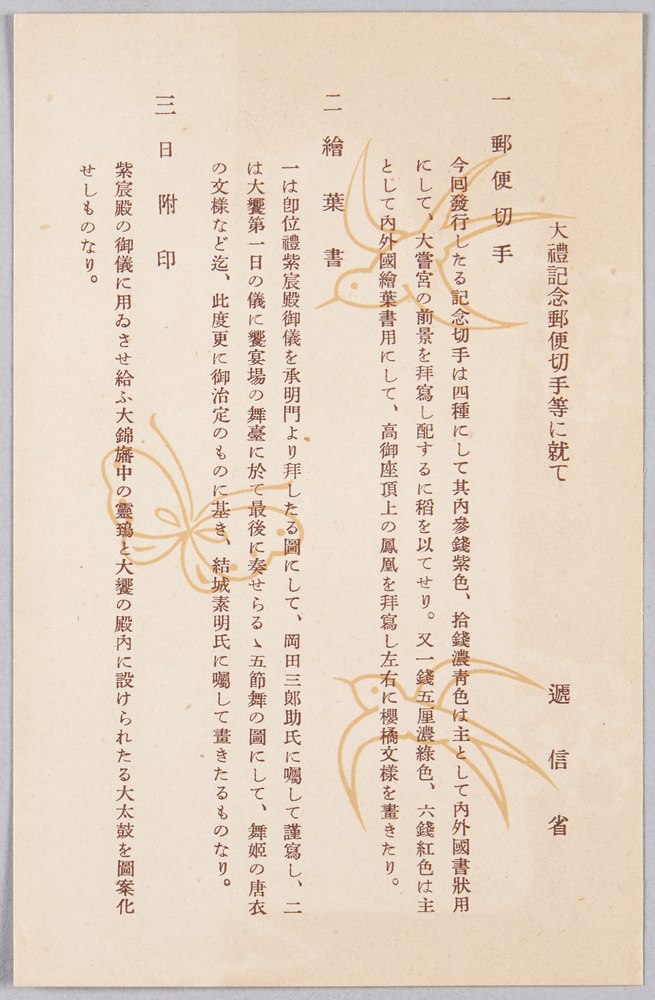 大禮記念郵便切手等に就て
遞信省
一 郵便切手
今囘發行したる記念切手は四種にして其内參錢紫色、拾錢濃青色は主として内外國書狀用
にして、大嘗宮の前景を拜寫し配するに稻を以てせり。又一錢五厘濃綠色、六錢紅色は主
として内外國繪葉書用にして、高御座頂上の鳳凰を拜寫し左右に櫻橘文樣を畫きたり。
二 繪葉書
一は卽位禮紫宸殿御儀を承明門より拜したる圖にして、岡田三郞助氏に囑して謹寫し、二
は大饗第一日の儀に饗宴場の舞臺に於て最後に奏せらるゝ五節舞の圖にして、舞姬の唐衣
の文樣など迄、此度更に御治定のものに基き、結城素明氏に囑して畫きたるものなり。
三 日附印
紫宸殿の御儀に用ゐさせ給ふ大錦旛中の靈鵄と大饗の殿内に設けられたる大太鼓を圖案化
せしものなり。